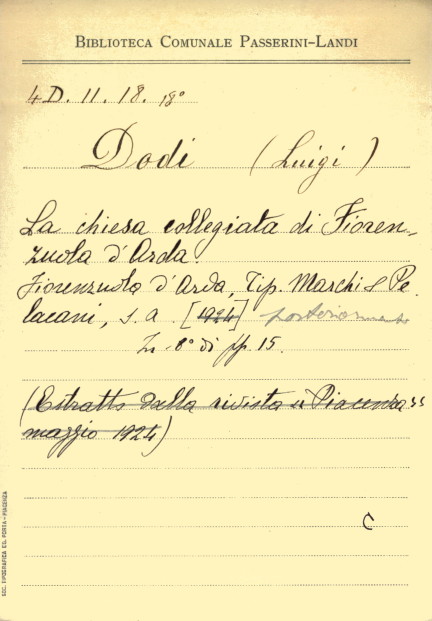 BIBLIOTECA COMUNALE PASSERINI-LANDI
4D. 11. 18. 18°
Dodi (Luigi)
La chiesa collegiata di Fioren-
zuola d'Arda.
Fiorenzuola d'Arda, Tip. Marchi & Pe-
lacani, s. a. [1924] posteriormente
In-8° di pp. 15.
(Estratto dalla rivista "Piacenza"
maggio 1924)
C
SOC. TIPOGRAFICA ED. PORTA - PIACENZA